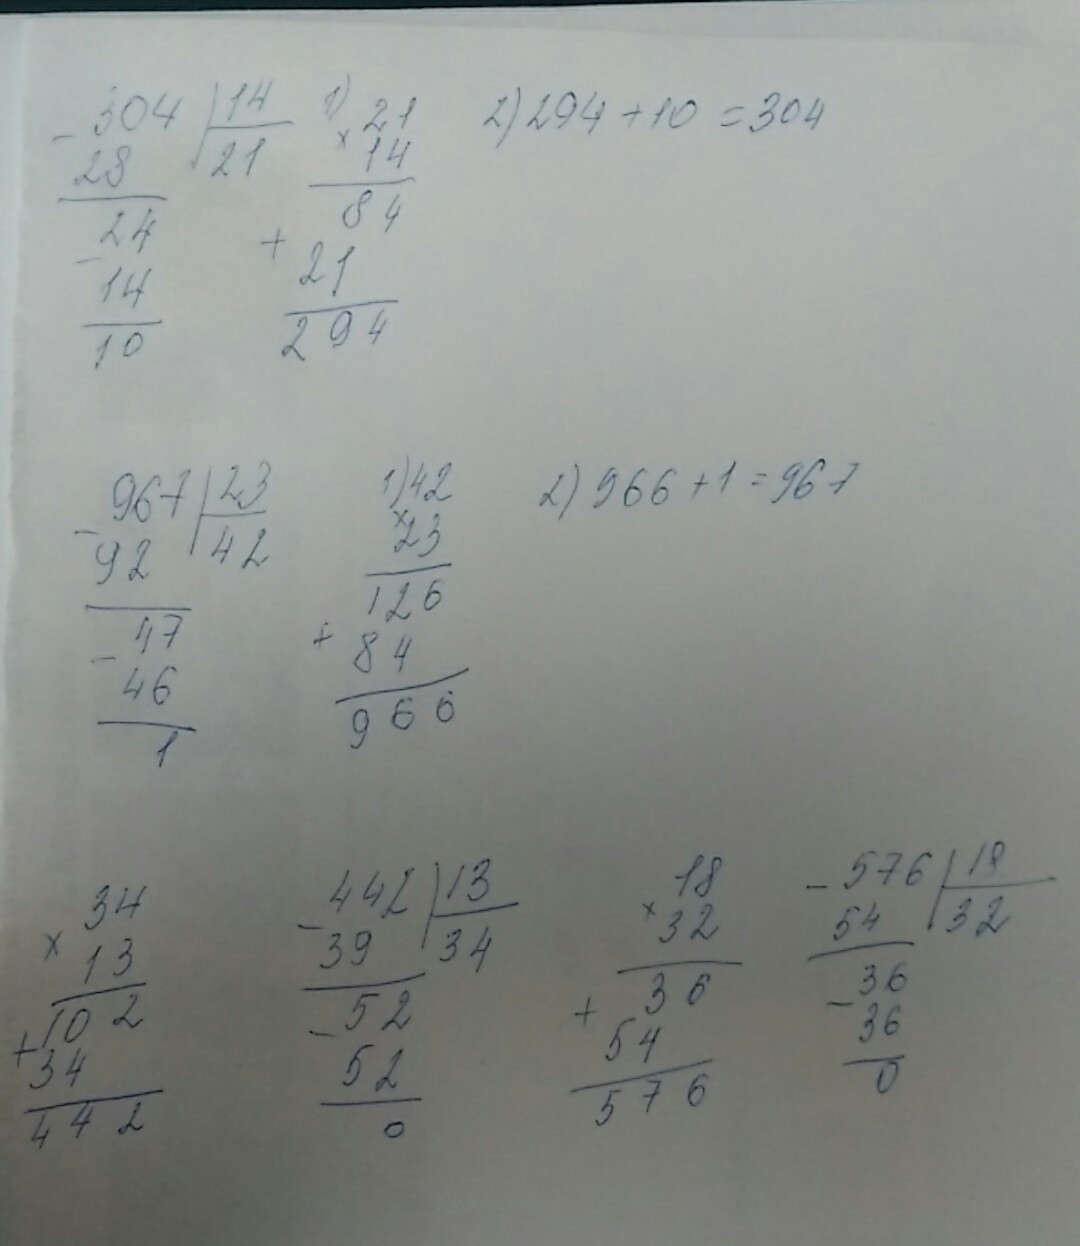 304 14 1) 21 2) 294 + 10 = 304
- 28 21 × 14
24 84
- 14 + 21
10 294
967 23 1) 42 2) 966 + 1 = 967
- 92 42 × 23
47 126
- 46 + 84
1 966
34 442 13 18 576 18
× 13 - 39 34 × 32 - 54 32
102 52 36 36
+ 34 - 52 + 54 - 36
442 0 576 0